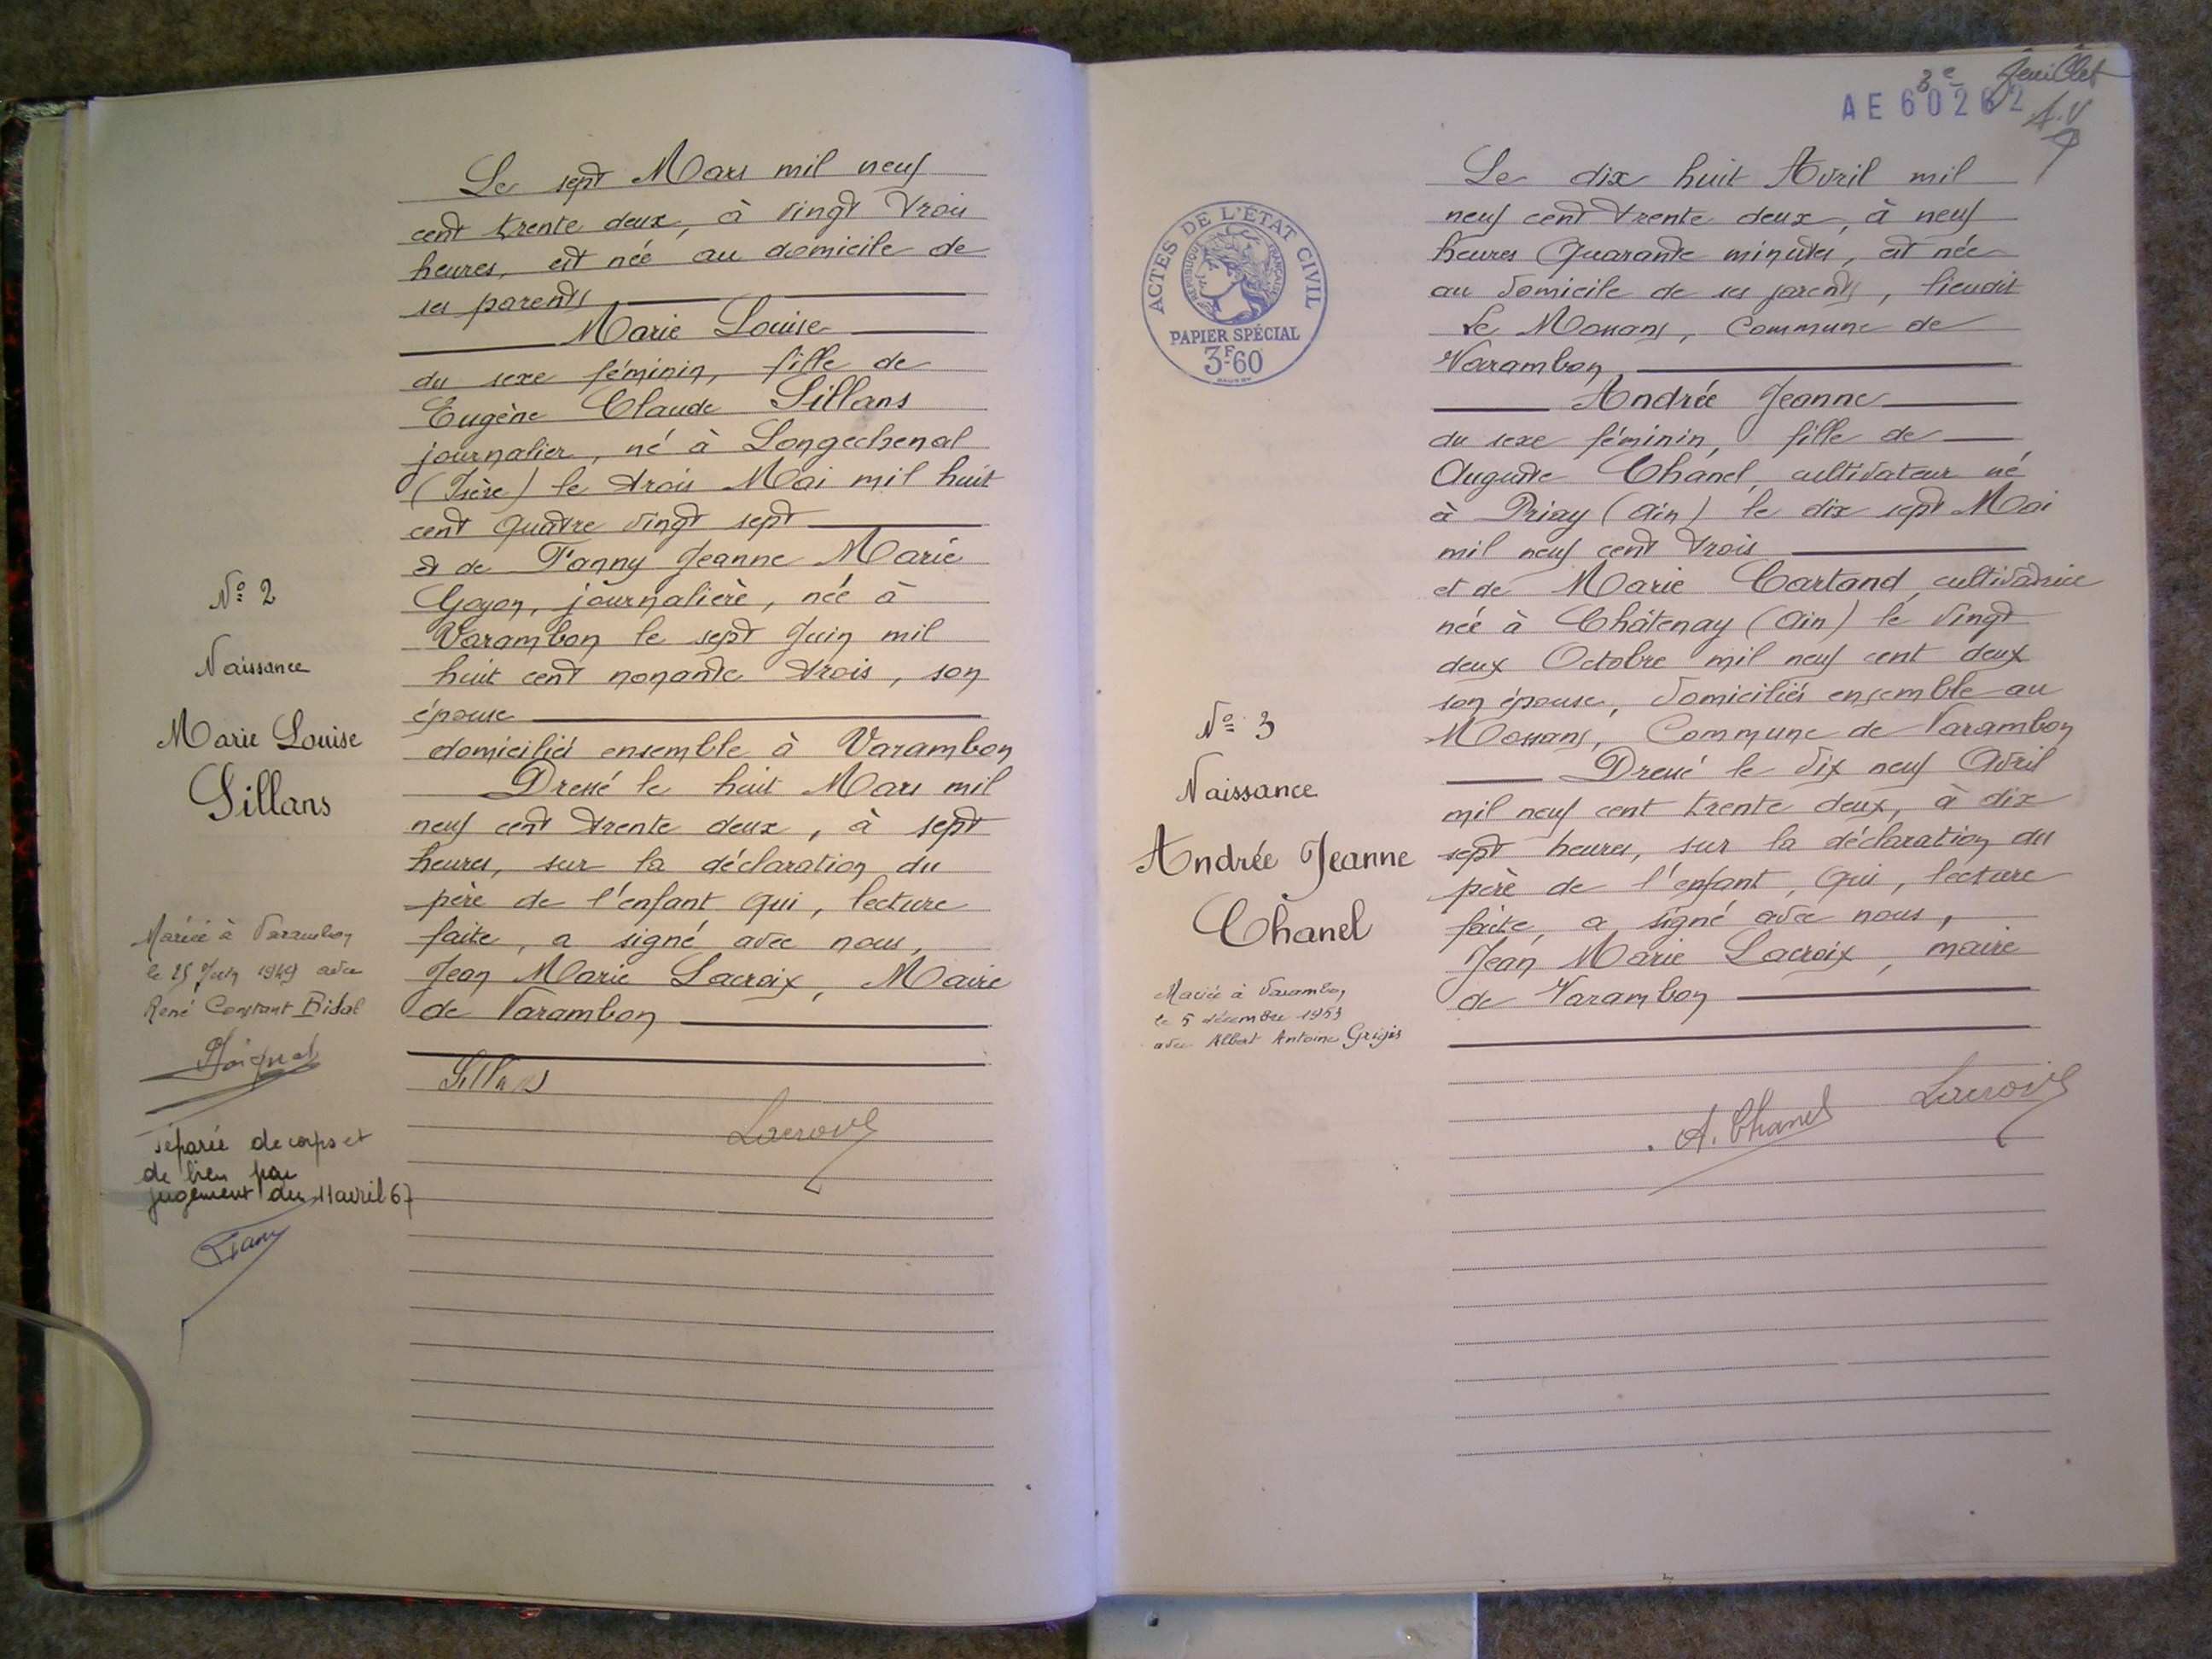 Le sept Mars mil neuf
cent trente deux, à vingt trois
heures, est née au domicile de
ses parents
Marie Louise
du sexe féminin, fille de
Eugène Claude Sillans
journalier, né à Longechenal
(Isère) le trois Mai mil huit
cent quatre vingt sept
et de Fanny Jeanne Marie
Goyon, journalière, née à
Varambon le sept Juin mil
huit cent nonante trois, son
épouse
domiciliés ensemble à Varambon
Dressé le huit Mars mil
neuf cent trente deux, à sept
heures, sur la déclaration du
père de l'enfant qui, lecture
faite, a signé avec nous,
Jean Marie Lacroix, Maire
de Varambon
Sillans
Lacroix
N° 2
Naissance
Marie Louise
Sillans
Mariée à Varambon
le 25 Juin 1949 avec
René Constant Bidal
séparée de corps et
de bien par
jugement du 11 avril 67
3e feuillet
AE 60262
A.V
ACTES DE L'ÉTAT CIVIL
RÉPUBLIQUE FRANÇAISE
PAPIER SPÉCIAL
3F60
Le dix huit Avril mil
neuf cent trente deux, à neuf
heures quarante minutes, est née
au domicile de ses parents, lieudit
Le Mossans, Commune de
Varambon
Andrée Jeanne
du sexe féminin, fille de
Auguste Chanel, cultivateur né
à Priay (Ain) le dix sept Mai
mil neuf cent trois
et de Marie Cartand, cultivatrice
née à Châtenay (Ain) le vingt
deux Octobre mil neuf cent deux
son épouse, domiciliés ensemble au
Mossans, Commune de Varambon
Dressé le dix neuf Avril
mil neuf cent trente deux, à dix
sept heures, sur la déclaration du
père de l'enfant, qui, lecture
faite, a signé avec nous,
Jean Marie Lacroix, maire
de Varambon
A. Chanel
Lacroix
N° 3
Naissance
Andrée Jeanne
Chanel
Mariée à Varambon
le 5 décembre 1953
avec Albert Antoine Grigis